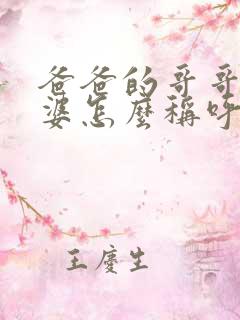 爸爸的哥哥
婆怎麼稱呼
王慶生